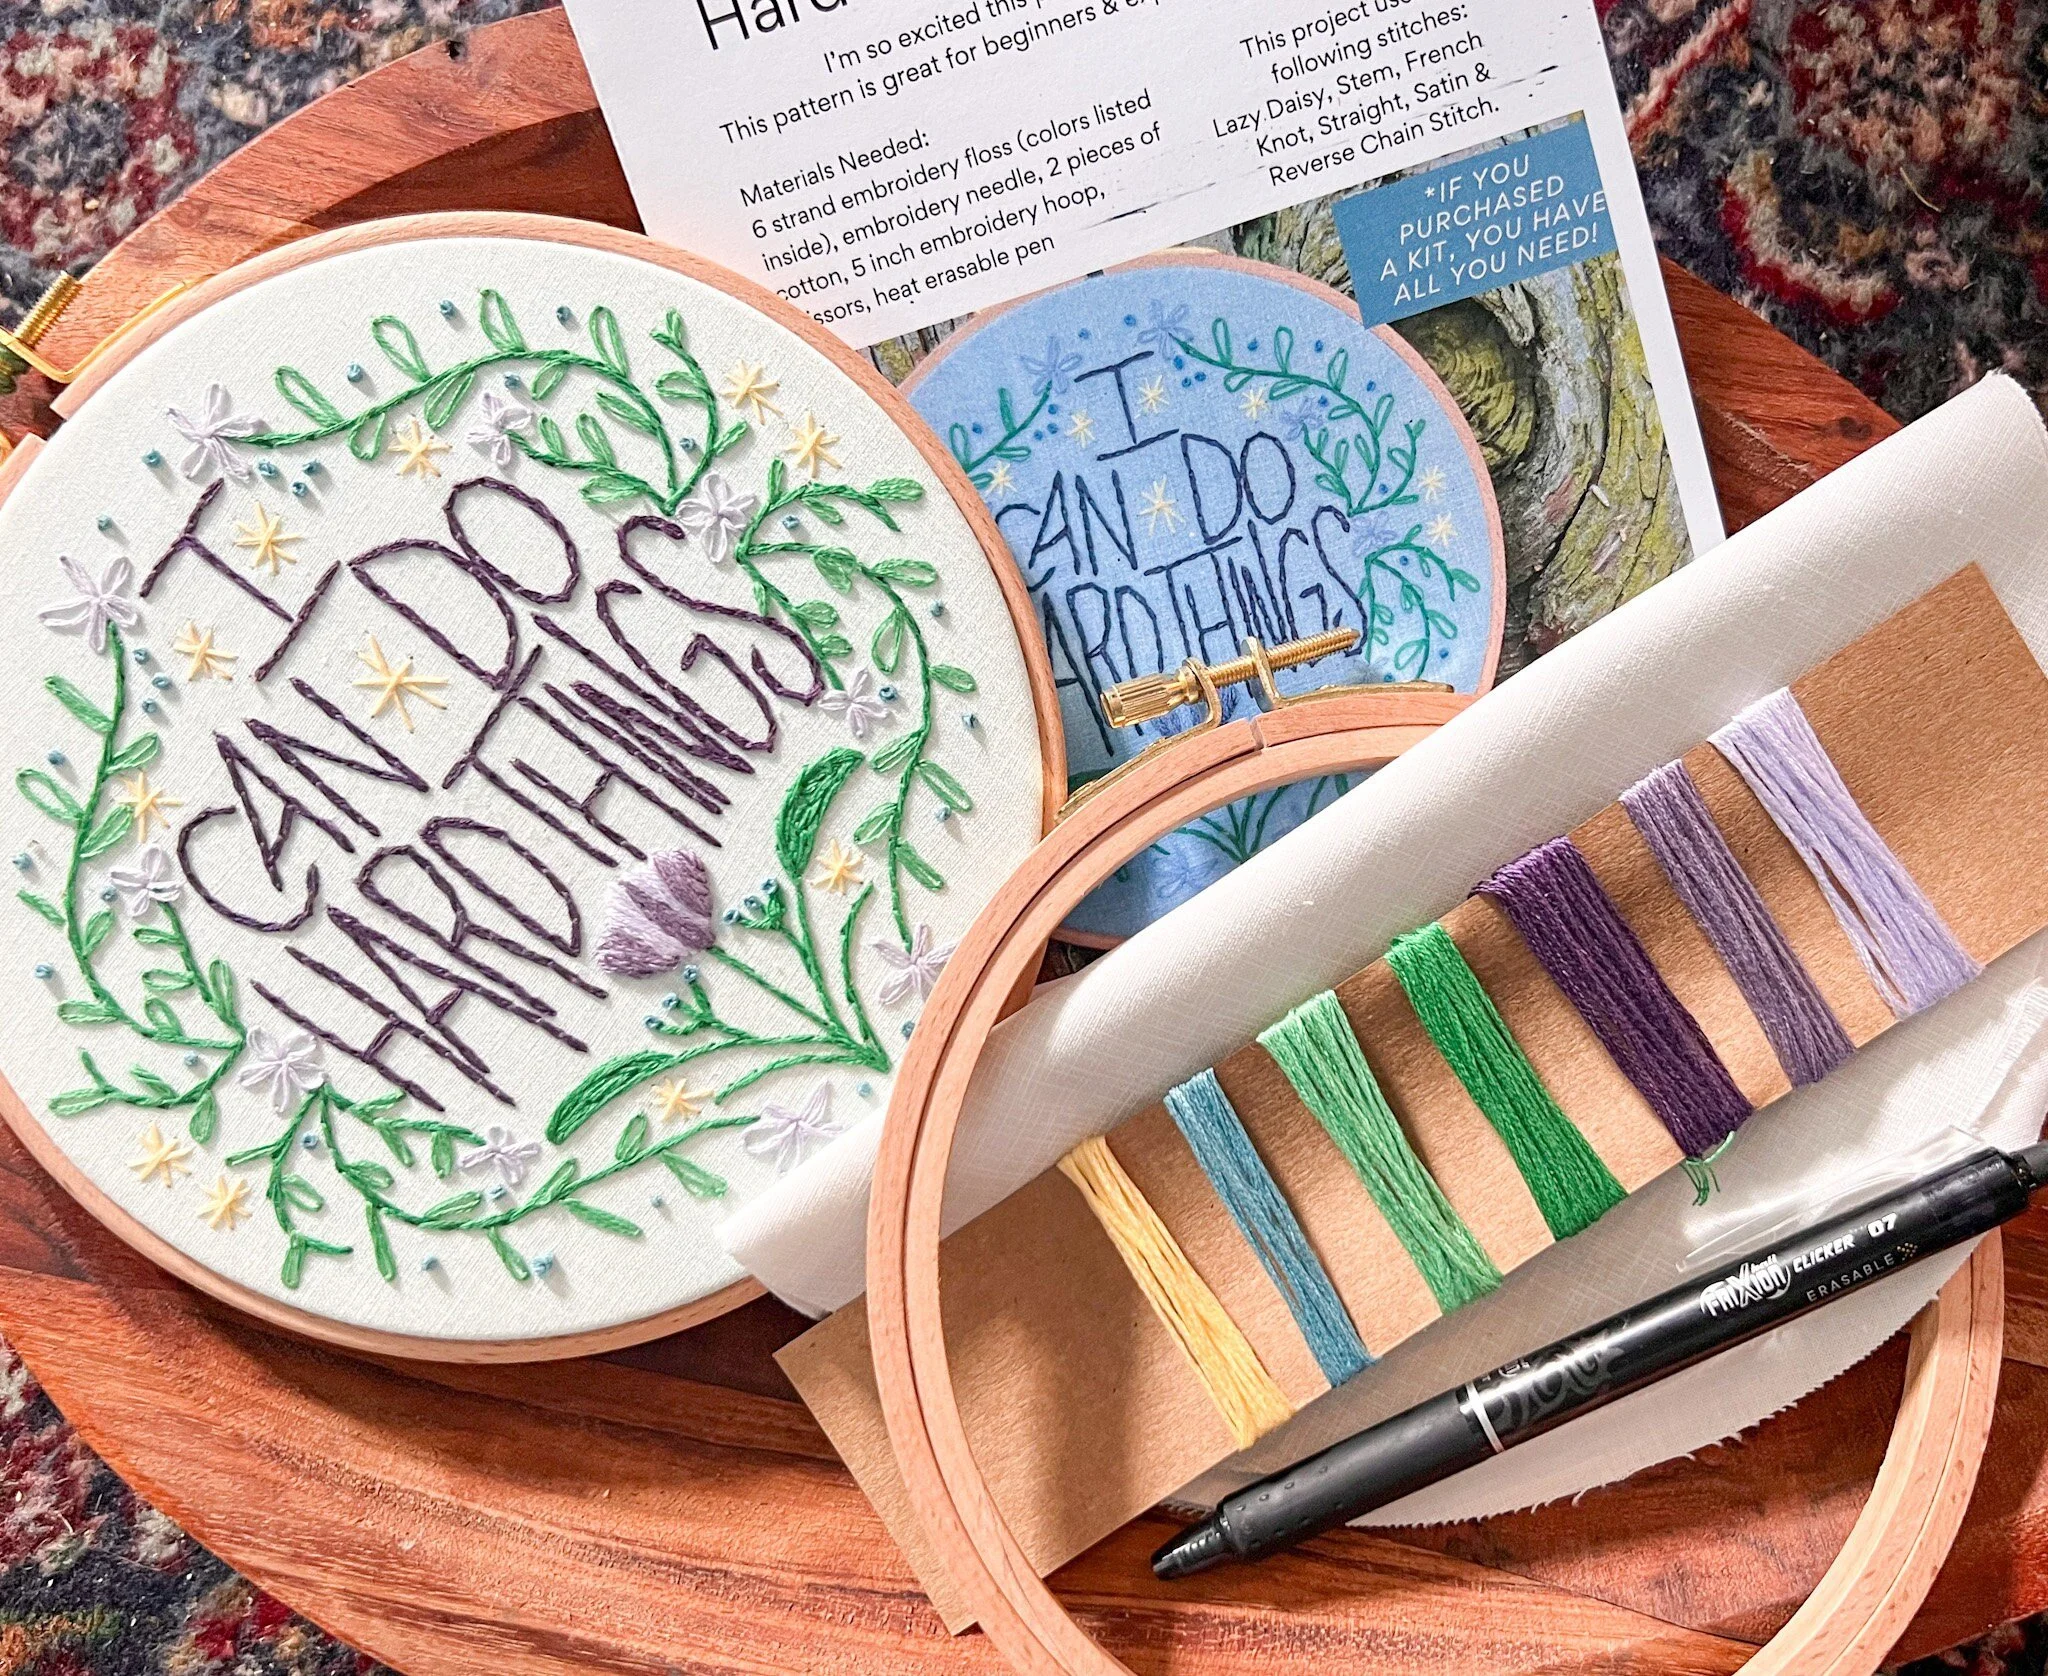 Hard
I'm so excited this
This pattern is great for beginners &
Materials Needed:
6 strand embroidery floss (colors listed
inside), embroidery needle, 2 pieces of
cotton, 5 inch embroidery hoop,
issors, heat erasable pen
This project use
following stitches:
Lazy Daisy, Stem, French
Knot, Straight, Satin &
Reverse Chain Stitch.
*IF YOU
PURCHASED
A KIT, YOU HAVE
ALL YOU NEED!
I
CAN DO
HARD THINGS
I
CAN DO
ARD THINGS
FRIXION ball CLICKER 07
ERASABLE